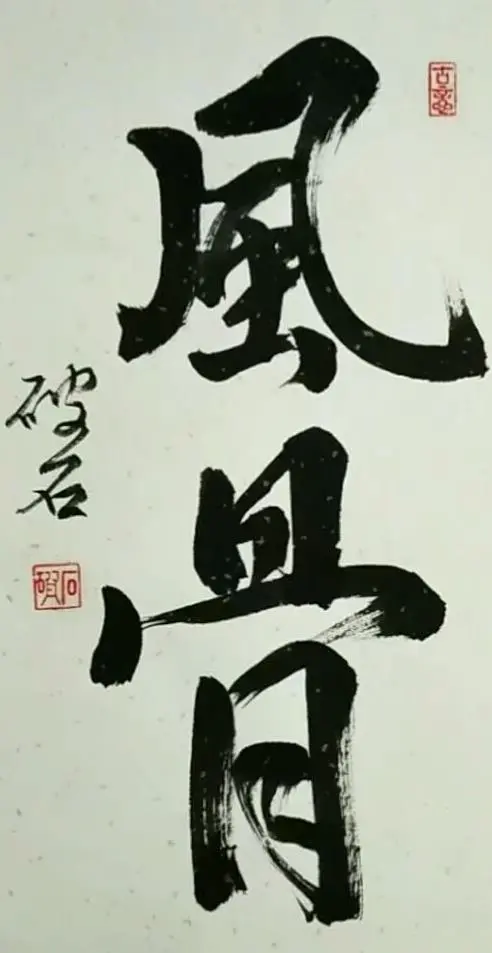 風骨
破石